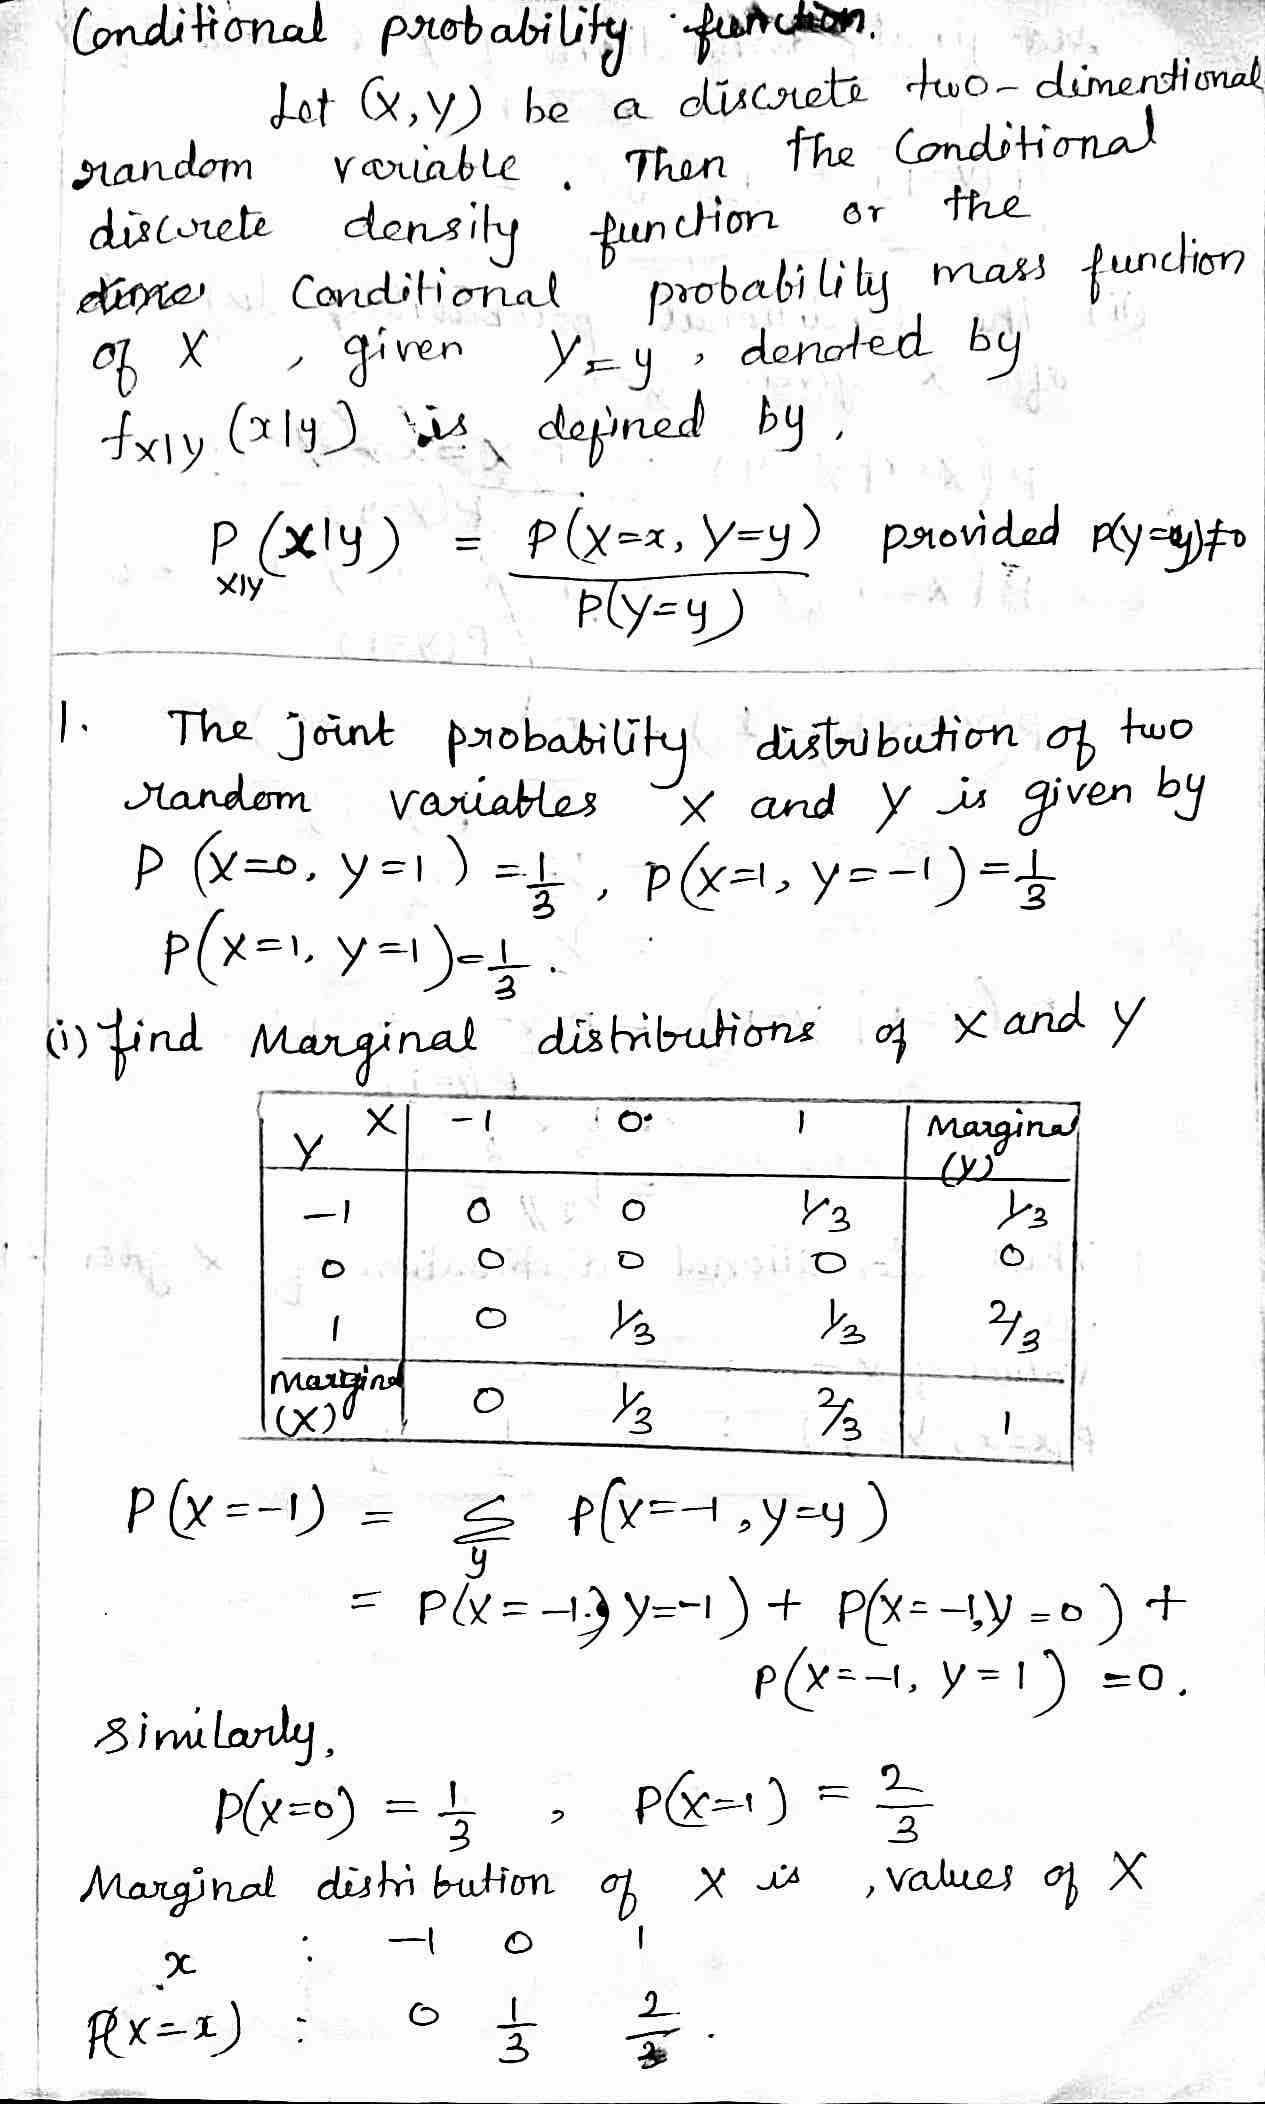 Conditional probability function.
Let (X,Y) be a discrete two-dimentional
random variable. Then the Conditional
discrete density function or the
Conditional probability mass function
of X, given Y=y, denoted by
fX|Y (x|y) is defined by,
PX|Y (x|y) = P(X=x, Y=y) / P(Y=y) provided P(Y=y)≠0
1. The joint probability distribution of two
random variables X and Y is given by
P(X=0, Y=1) = 1/3, P(X=1, Y=-1) = 1/3
P(X=1, Y=1) = 1/3.
(i) find Marginal distributions of X and Y
Y X -1 0 1 Marginal (Y)
-1 0 0 1/3 1/3
0 0 0 0 0
1 0 1/3 1/3 2/3
Marginal (X) 0 1/3 2/3 1
P(X=-1) = Σy P(X=-1, Y=y)
= P(X=-1, Y=-1) + P(X=-1, Y=0) +
P(X=-1, Y=1) =0.
similarly,
P(X=0) = 1/3, P(X=1) = 2/3
Marginal distribution of X is, values of X
x : -1 0 1
P(X=x) : 0 1/3 2/3.